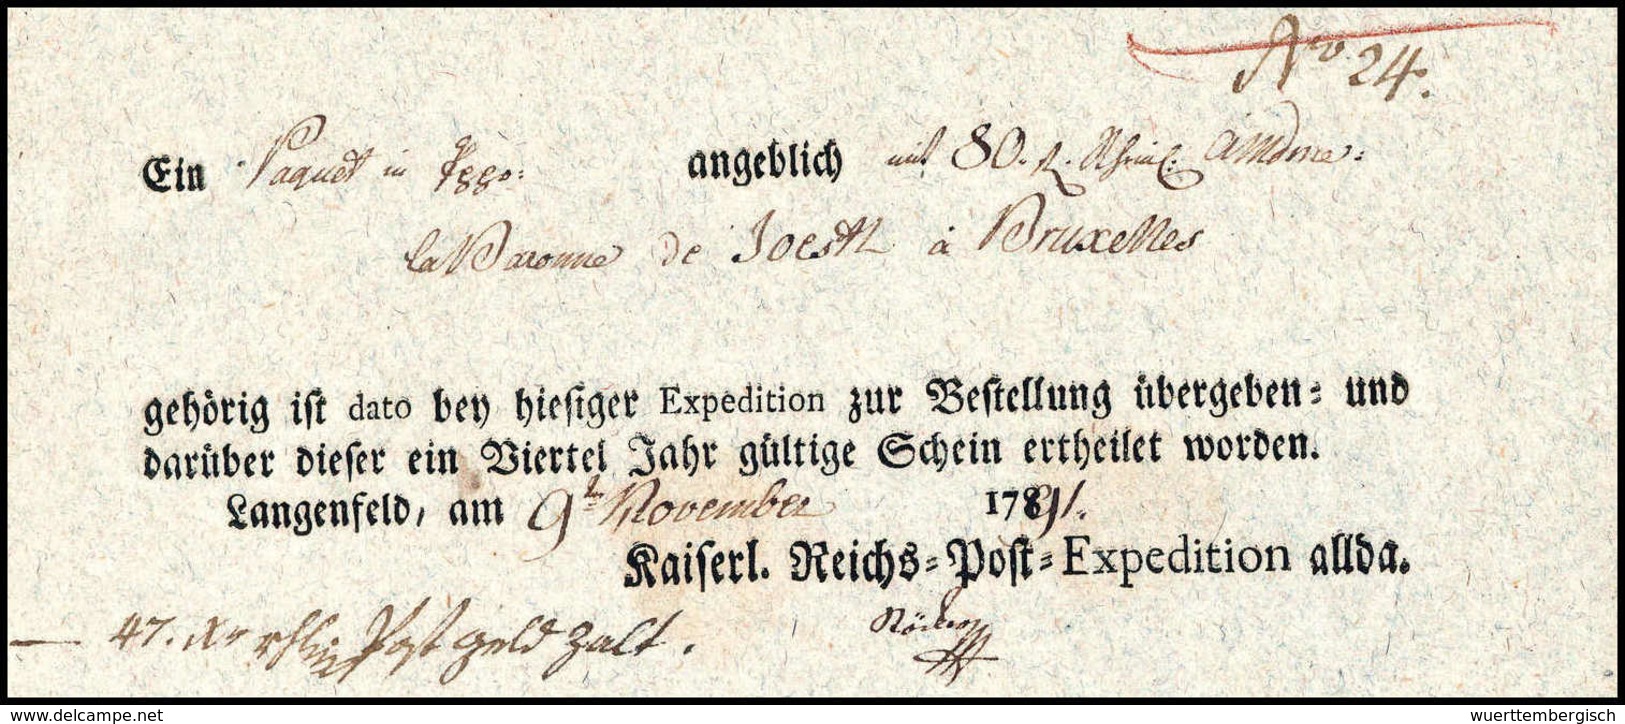 No 24.
Ein Paquet in angeblich mit 80. Rhein. a Mdme:
la Baronne de Joesth à Bruxelles
gehörig ist dato bey hiesiger Expedition zur Bestellung übergeben= und
darüber dieser ein Viertel Jahr gültige Schein ertheilet worden.
Langenfeld, am 9ten November 1791.
Kaiserl. Reichs=Post=Expedition allda.
47. Xr Post geld zalt.
delcampe.net
wuerttembergisch